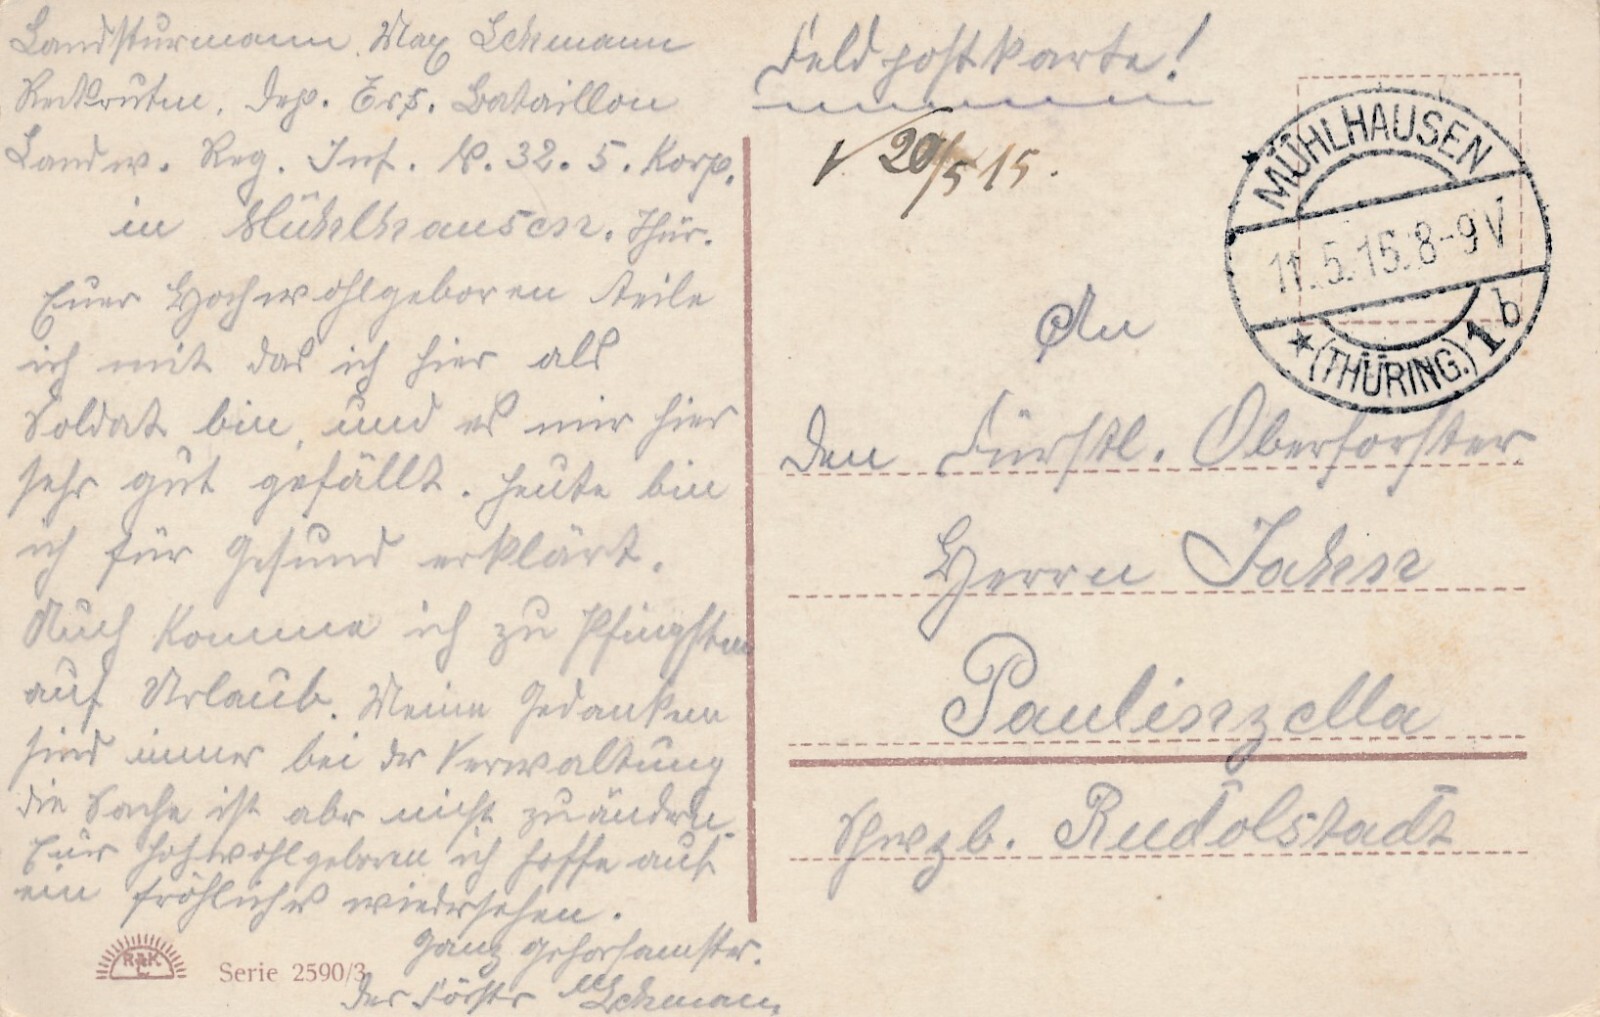 Landsturmann Max Lehmann
Reckruten. Dep. Ers. Bataillon
Landw. Reg. Inf. N. 32. 5. Korp.
in Mühlhausen. Thür.
Euer Hochwohlgeboren teile
ich mit das ich hier als
Soldat bin, und es mir hier
sehr gut gefällt. Heute bin
ich für Gesund erklärt.
Auch komme ich zu Pfingsten
auf Urlaub. Meine Gedanken
sind immer bei der Verwaltung
die Sache ist aber nicht zu ändern.
Euer hochwohlgeboren ich hoffe auf
ein fröhliches wiedersehen.
Ganz gehorsamster.
Der Förster M Lehmann
R&K
L
Serie 2590/3
Feldpostkarte!
20/5 15.
MÜHLHAUSEN
11.5.15.8-9V
★ (THÜRING.) 1b
An
den Fürstl. Oberforster
Herrn Jahn
Paulinzella
Schwzb. Rudolstadt